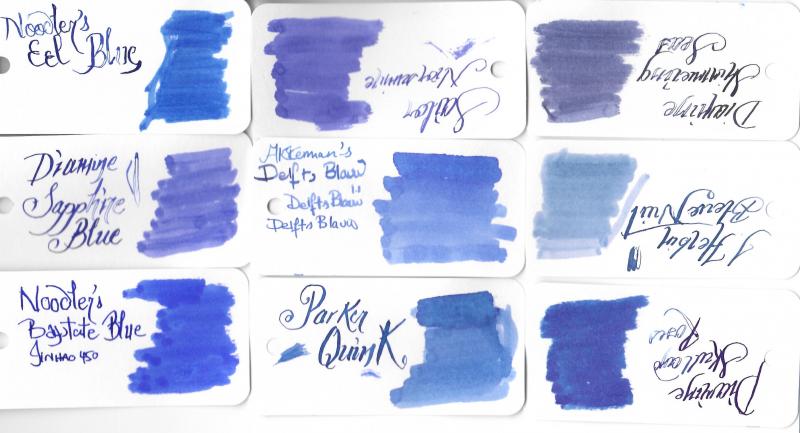 Noodler's
Eel Blue
Sailor
Nioisumire
Diamine
Shimmering
Seas
Diamine
Sapphire
Blue
Akkerman's
Delfts Blauw
Delfts Blauw
Delfts Blauw
J Herbin
Bleue Nuit
Noodler's
Baystate Blue
JINHAO 450
Parker
Quink
Diamine
Skull and
Roses